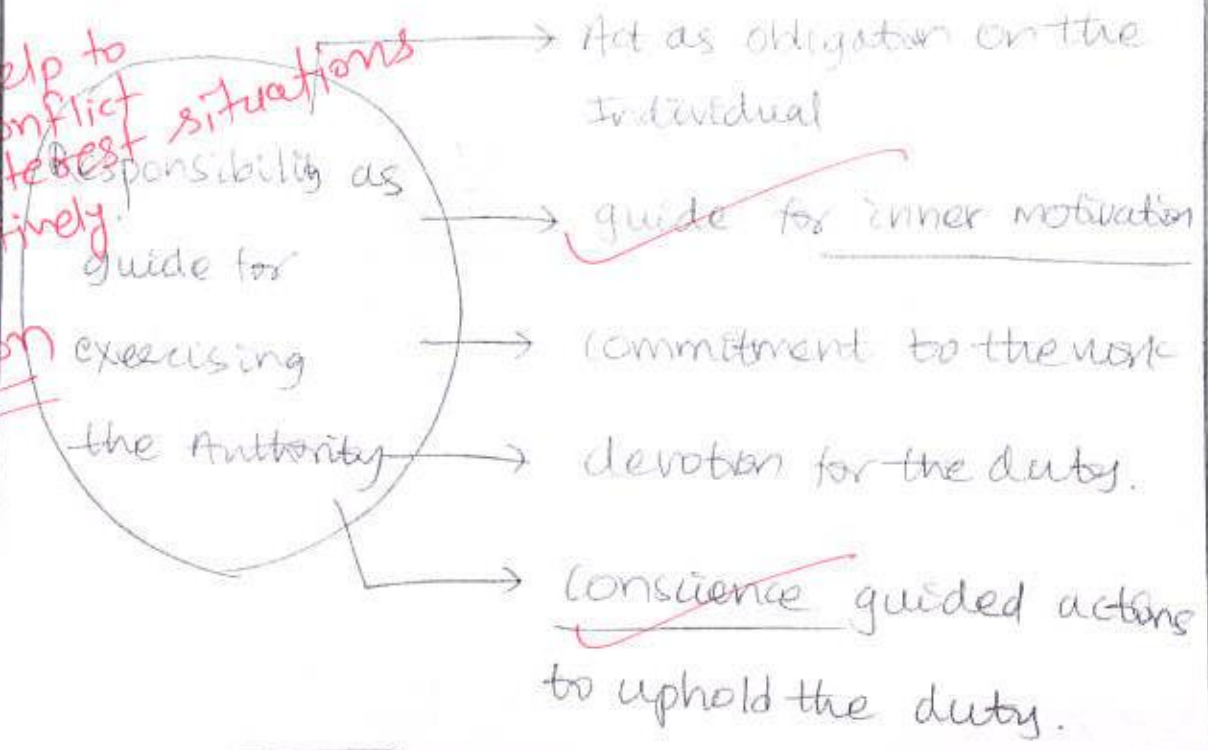 elp to
onflict
terest situations
tively.
on
Responsibility as
guide for
exercising
the Authority
Act as obligation on the
Individual
guide for inner motivation
commitment to the work
devotion for the duty.
Conscience guided actions
to uphold the duty.